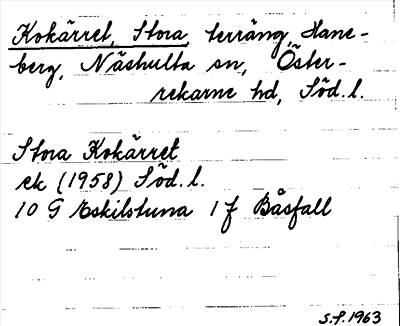 Kokärret, Stora, terräng, Hane-
berg, Näshulta sn, Öster-
rekarne hd, Söd.l.
Stora Kokärret
ek (1958) Söd.l.
10 G Eskilstuna 1 f Båsfall
S.f. 1963